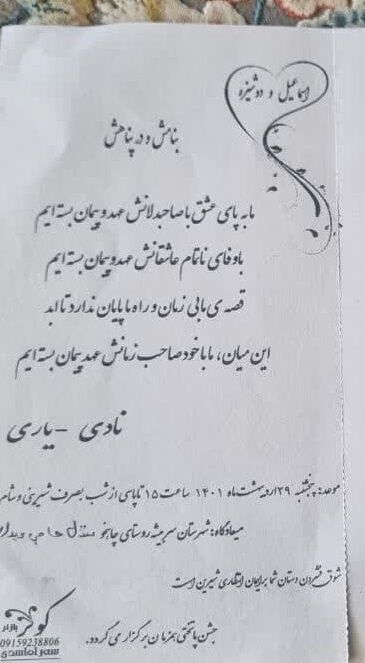 اسماعیل و دوشیزه
بنامش و در پناهش
ما به پای عشق با صاحبدلانش عهد و پیمان بسته ایم
با وفای ناتمام عاشقانش عهد و پیمان بسته ایم
قصه ی ما بی زمان و راه ما پایان ندارد تا ابد
این میان، ما با خود صاحب زمانش عهد پیمان بسته ایم
نادی - یاری
موعد: پنجشنبه ۲۹ اردیبهشت ماه ۱۴۰۱ ساعت ۱۵ تا پاسی از شب بصرف شیرینی و شام
میعادگاه: شهرستان سربیشه روستای چاهخو منزل حاجی
شوق فشردن دستان شما برایمان انتظاری شیرین است
جشن پاتختی همزمان برگزار می گردد.
کوثر
بازار
09159238806